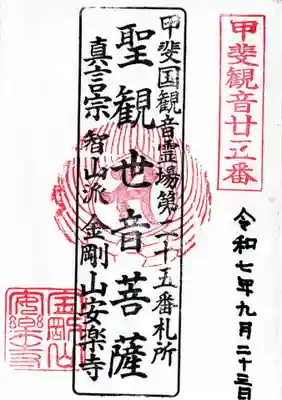 甲斐観音廿五番
令和七年九月二十三日
甲斐国観音霊場第二十五番札所
聖観世音菩薩
真言宗智山派 金剛山安楽寺